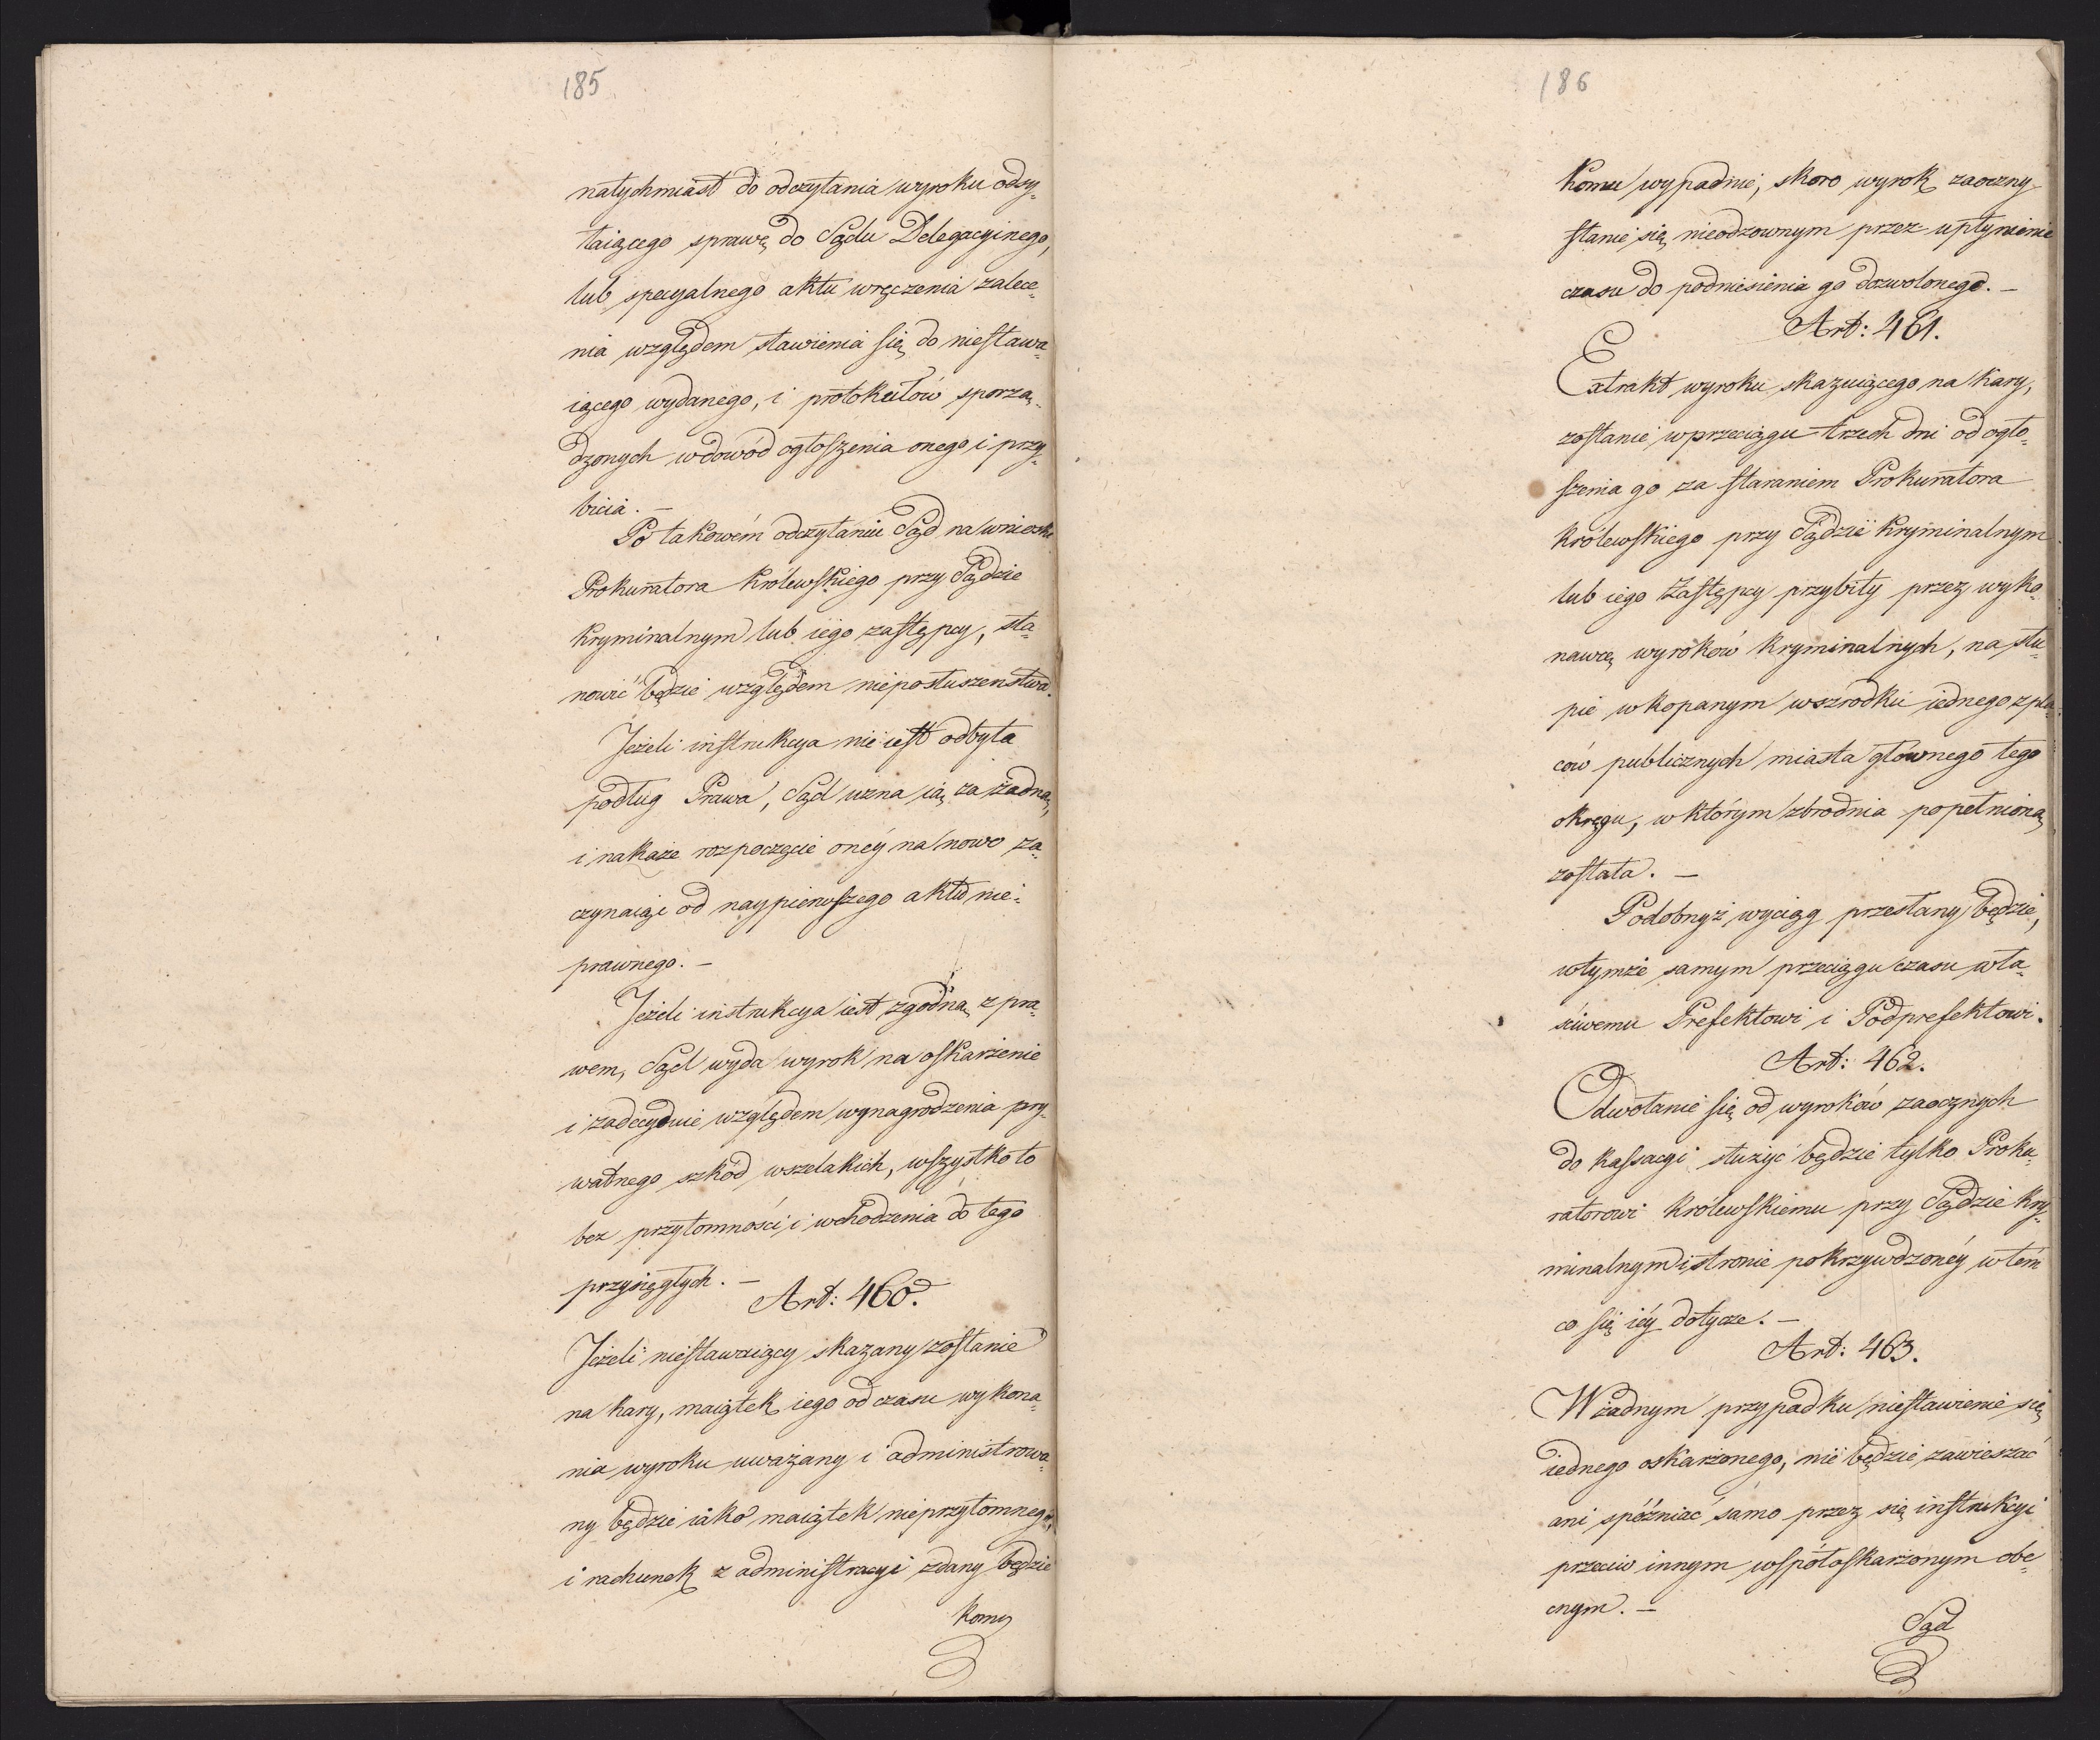 185
natychmiast do odczytania wyroku odsy„
łaiącego sprawę do Sądu Delegacyinego,
lub specyalnego aktu wręczenia zalece„
nia względem stawienia się do niestawa„
iącego wydanego, i protokułów sporzą„
dzonych w dowód ogłoszenia onego i przy„
bicia. –
Po takowém odczytaniu Sąd na wniosk
Prokuratora Królewskiego przy Sądzie
Kryminalnym lub iego zastępcy, sta„
nowić będzie względem nieposłuszenstwa.
Jeżeli instrukcya nie iest odbyta
podług Prawa, Sąd uzna ią za żadną,
i nakaże rozpoczęcie onéy na nowo za„
czynaiąc od naypierwszego aktu nie„
prawnego. –
Jeżeli instrukcya iest zgodna z pra„
wem, Sąd wyda wyrok na oskarżenie
i zadecyduie względem wynagrodzenia pry„
watnego szkód wszelakich, wszystko to
bez przytomności i wchodzenia do tego
przysięgłych. –
Art: 460.
Jeżeli niestawaiący skazany zostanie
na kary, maiątek iego od czasu wykona„
nia wyroku uważany i administrowa„
ny będzie iako maiątek nieprzytomnego,
i rachunek z administracyi zdany będzie
Komu
186
Komu wypadnie, skoro wyrok zaoczny
stanie się nieodzownym przez upłynienie
czasu do podniesienia go dozwolonego. –
Art: 461.
Extrakt wyroku skazuiącego na kary,
zostanie w przeciągu trzech dni od ogło„
szenia go za staraniem Prokuratora
Królewskiego przy Sądzie Kryminalnym
lub iego Zastępcy przybity przez wyko„
nawcę wyroków kryminalnych, na słu„
pie wkopanym wszrodku iednego z pla„
ców publicznych miasta głównego tego
okręgu, w którym zbrodnia popełnioną
została. –
Podobnyż wyciąg przesłany będzie,
w tymże samym przeciągu czasu wła„
ściwemu Prefektowi i Podprefektowi.
Art: 462.
Odwołanie się od wyroków zaocznych
do Kassacyi służyć będzie tylko Proku„
ratorowi Królewskiemu przy Sądzie Kry„
minalnym i stronie pokrzywdzonéy w tém
co się iéy dotycze. –
Art: 463.
W żadnym przypadku niestawienie się
iednego oskarżonego, nie będzie zawieszać
ani spóźniać samo przez się instrukcyi
przeciw innym współoskarżonym obe„
cnym. –
Sąd